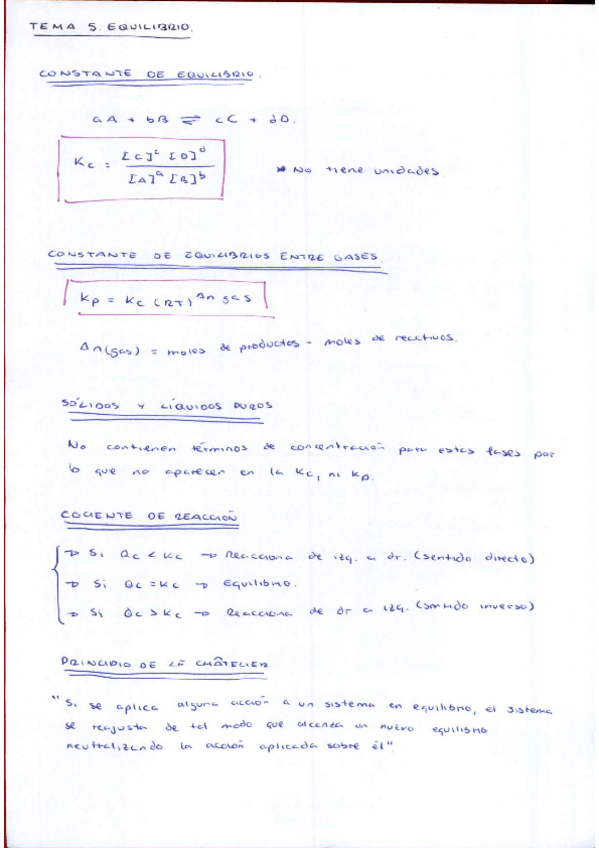 TEMA 5. EQUILIBRIO.
CONSTANTE DE EQUILIBRIO.
aA + bB ⇌ cC + dD.
Kc = [C]^c [D]^d / [A]^a [B]^b
* No tiene unidades
CONSTANTE DE EQUILIBRIOS ENTRE GASES.
Kp = Kc (RT)^Δn gas
Δn(gas) = moles de productos - moles de reactivos.
SÓLIDOS Y LÍQUIDOS PUROS
No contienen términos de concentración para estas fases por
lo que no aparecen en la Kc, ni Kp.
COCIENTE DE REACCIÓN
→ Si Qc < Kc → Reacciona de izq. a dr. (sentido directo)
→ Si Qc = Kc → Equilibrio.
→ Si Qc > Kc → Reacciona de dr a izq. (sentido inverso)
PRINCIPIO DE LE CHÂTELIER
"Si se aplica alguna acción a un sistema en equilibrio, el sistema
se reajusta de tal modo que alcanza un nuevo equilibrio
neutralizando la acción aplicada sobre él".